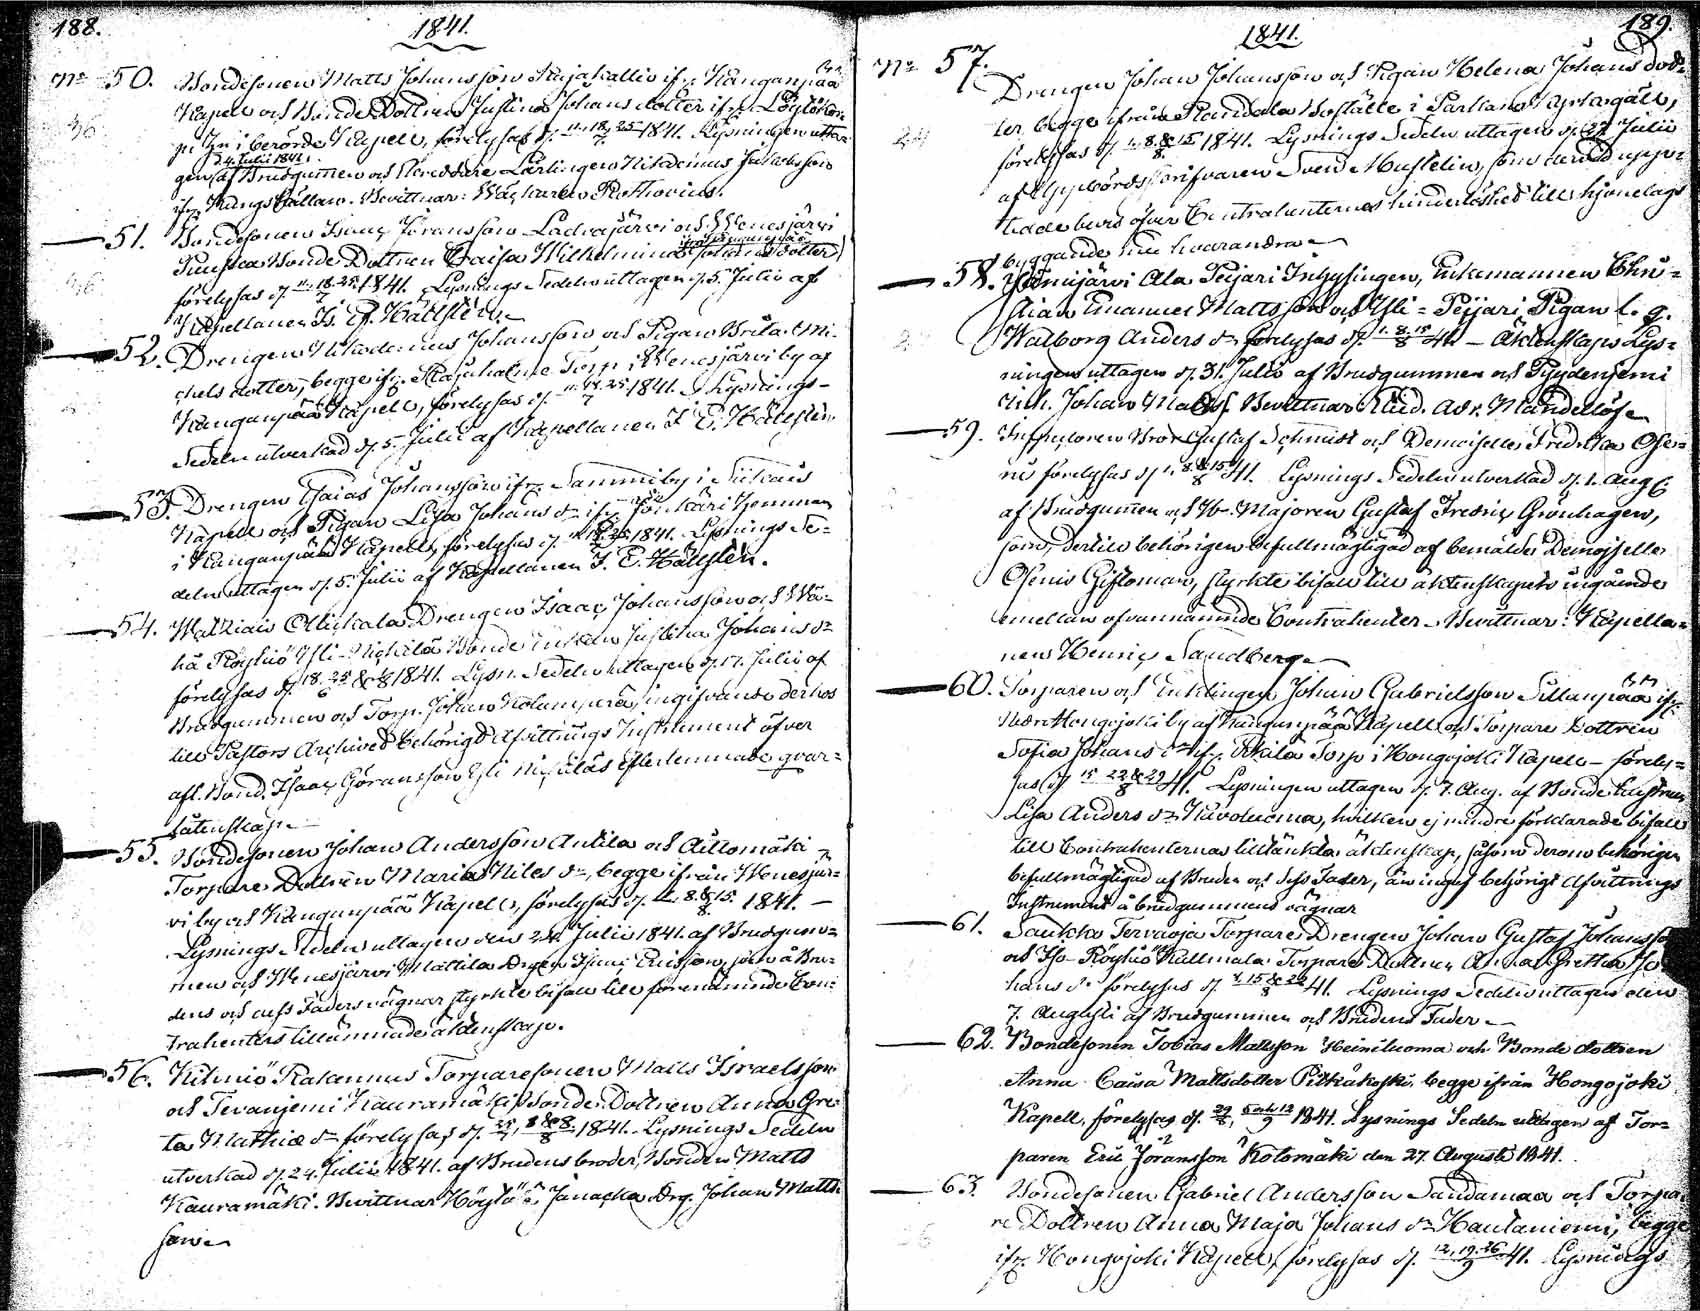 188.
1841.
No 50. Bondesonen Matts Johansson Kujakallio ifr. Kanganpää
Kapell och Bonde Dottren Justina Johans dotter ifr.
i berörde Kapell, förelyses d. 11, 18, 25/7 1841. Lysningen uttagen
24 Julii 1841.
af Brudgummen och Lärlingen Nikodemus Jakobsson
ifr. Kungs Källan. Bevittnar: Rothovius.
51. Bondesonen Isaac Jöransson Ladvajärvi och Wenesjärvi
Bonde Dottren Caisa Wilhelmina Johans dotter
förelyses d. 11, 18, 25/7 1841. Lysnings Sedeln uttagen d. 5. Julii af
Kapellanen Is. Ef. Hällsten.
52. Drengen Nikodemus Johansson och Pigan Brita Mi-
chels dotter, begge ifr. Torp i Wenesjärvi by af
Kanganpää Kapell, förelyses d. 11, 18, 25/7 1841. Lysnings
Sedeln utverkad d. 5 Julii af Kapellanen I. E. Hällsten.
53. Drengen Esaias Johansson ifr. Sammi by i Siikais
Kapell och Pigan Lisa Johans dr ifr. hemman
i Kanganpää Kapell, förelyses d. 11, 18, 25/7 1841. Lysnings Se-
deln uttagen d. 5. Julii af Kapellanen I. E. Hällsten.
54. Drengen Isaac Johansson och Wä-
hä Röyhiö Yli-Nickilä Bonde Enkan Justina Johans dr
förelyses d. 18, 25 1841. Lysn. Sedeln uttagen d. 17. Julii af
Brudgummen och Torp. Johan ingifvande derhos
till Pastors Archivet behörigt Afvittnings Instrument öfver
afl. Bond. Isaac Göransson Yli Nickiläs efterlemnade qvar-
låtenskap.
55. Bondesonen Johan Andersson Antila och Aittomäki
Torpare Dottren Maria Nils dr, begge ifrån Wenesjär-
vi by och Kanganpää Kapell, förelyses d. 1, 8 & 15/8 1841.
Lysnings Sedeln uttagen den 24. Julii 1841. af Brudgum-
men och Wenesjärvi Mattila Drgen Ericsson, som å Bru-
dens och dess Faders vägnar styrkte bifall till förenämnde Con-
trahenters tillämnade äktenskap.
56. Kihniö Torparesonen Matts Israelsson
och Tevanjemi Kauramäki Bonde Dottren Anna Gre-
ta Mathiæ dr förelyses d. 25/7, 1 & 8/8 1841. Lysnings Sedeln
utverkad d. 24. Julii 1841. af Brudens broder, Bonden Matts
Kauramäki. Bevittnar Drg. Johan Matts-
son.
189.
1841.
No 57. Drengen Johan Johansson och Pigan Helena Johans dot-
ter, begge ifrån Boställe i Parkano Kapellgäll,
förelyses d. 1, 8 & 15/8 1841. Lysnings Sedeln uttagen d. 27 Julii
af Uppbördsskrifvaren Sven Mustelin, som derwid upp-
tedde bevis öfver Contrahenternes hinderlöshet till hjonelags
byggande med hvarandra.
58. Jämijärvi Ala Peijari Inhysingen, Enkemannen Chris-
tian Emanuel Mattsson och Yli-Peijari Pigan l. g.
Walborg Anders dr förelyses d. 1, 8, 15/8 41. Äktenskaps Lys-
ningen uttagen d. 31. Julii af Brudgummen och
Johan Matts. Bevittnar Stud. Adr. Mandellöf.
59. Inspectoren Bror Gustaf Schmidt och Demoiselle Fredrika Ose-
nie förelyses d. 1, 8 & 15/8 41. Lysnings Sedeln utverkad d. 1. Aug.
af Brudgummen och H. Majoren Gustaf Fredric Grönhagen,
som, dertill behörigen befullmägtigad af bemälde Demoiselle
Osenis Giftoman, styrkte bifall till äktenskapets ingående
emellan ofvannämnde Contrahenter. Bevittnar: Kapella-
nen Henric Sandberg.
60. Torparen och Enklingen Johan Gabrielsson Sillanpää ifr.
Hongojoki by af Kanganpää Kapell och Torpare Dottren
Sofia Johans dr ifr. Torp i Hongojoki Kapell förely-
ses d. 15, 22 & 29/8 41. Lysningen uttagen d. 7. Aug. af Bonde hustrun
Lisa Anders dr, hvilken ej mindre förklarade bifall
till Contrahenternas tilltänkta äktenskap, såsom derom behörigen
befullmägtigad af Bruden och dess Fader, än ingaf behörigt Afvittnings
Instrument å brudgummens vägnar
61. Sankka Tervaoja Torpare Drengen Johan Gustaf Johansson
och Iso-Röyhiö Kallmala Torpare Dottren Anna Gretha Jo-
hans dr förelyses d. 8, 15 & 22/8 41. Lysnings Sedeln uttagen den
7. Augusti af Brudgummen och Brudens Fader.
62. Bondesonen Tobias Mattsson Heiniluoma och Bonde dottren
Anna Caisa Mattsdotter Pitkäkoski, begge ifrån Hongojoki
Kapell, förelyses d. 29/8, 5 och 12/9 1841. Lysnings Sedeln uttagen af Tor-
paren Eric Jöransson Kotomäki den 27. Augusti 1841.
63. Bondesonen Gabriel Andersson Sandamaa och Torpa-
re Dottren Anna Maja Johans dr Hautaniemi, begge
ifr. Hongojoki Kapell, förelyses d. 12, 19, 26/9 41. Lysnings